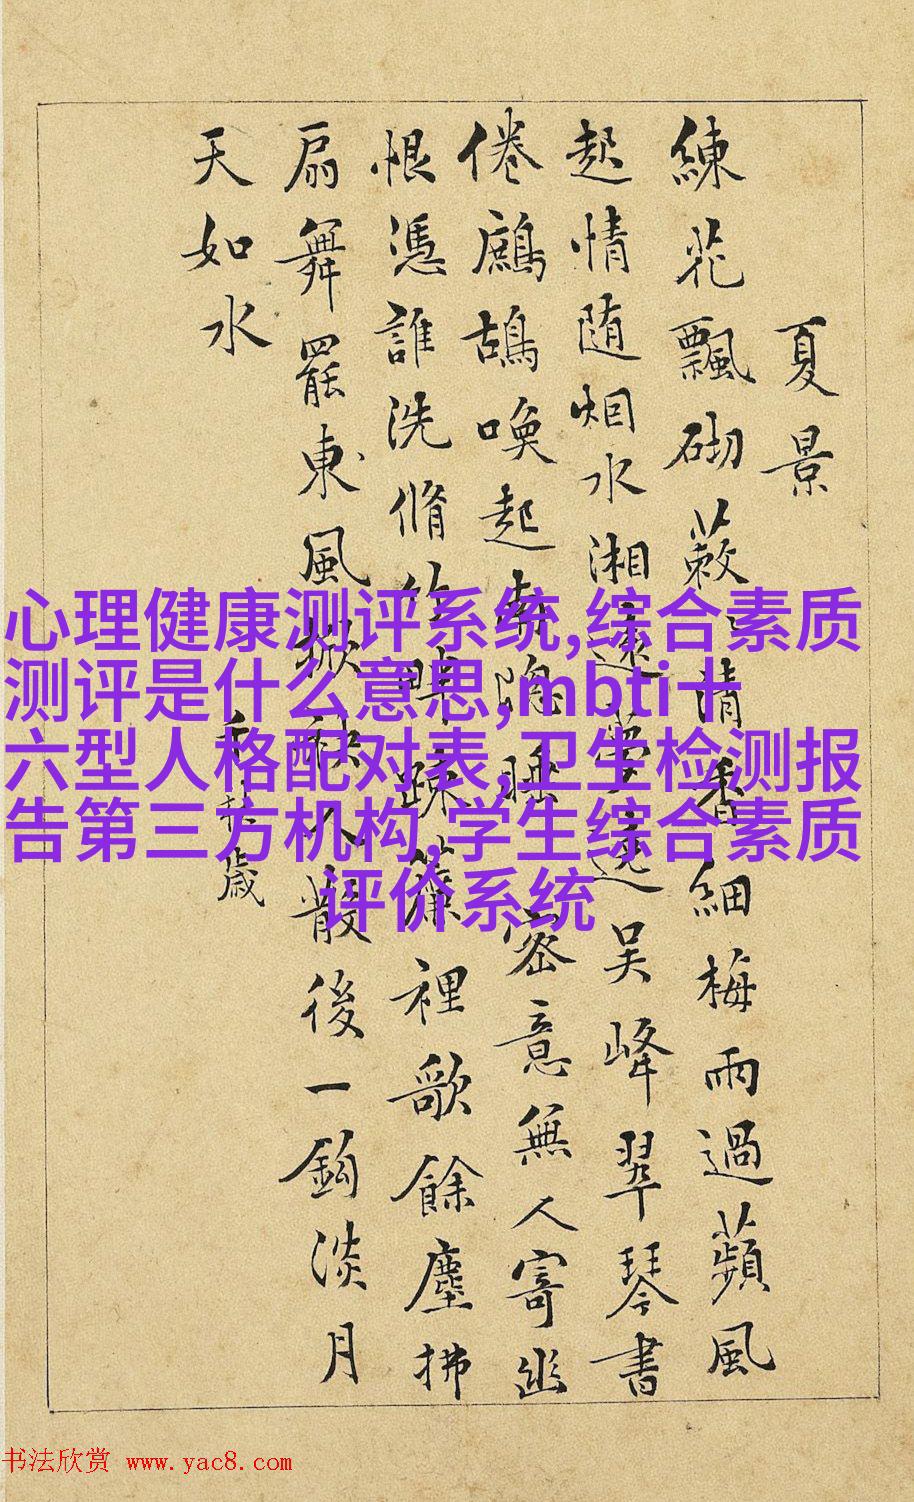 夏景
練花飄砌蔌々清香細梅雨過蘋風
起情随烟水湘遠夢遶吳峰翠琴書
倦鷓鴣喚起南睡密意無人寄幽
恨憑誰洗脩竹畔疎簾裡歌餘塵拂
扇舞罷東風掀袂人散後一鉤淡月
天如水
千秋歲
心理健康测评系统,综合素质
测评是什么意思,mbti十
六型人格配对表,卫生检测报
告第三方机构,学生综合素质
评价系统
书法欣赏 www.yac8.com